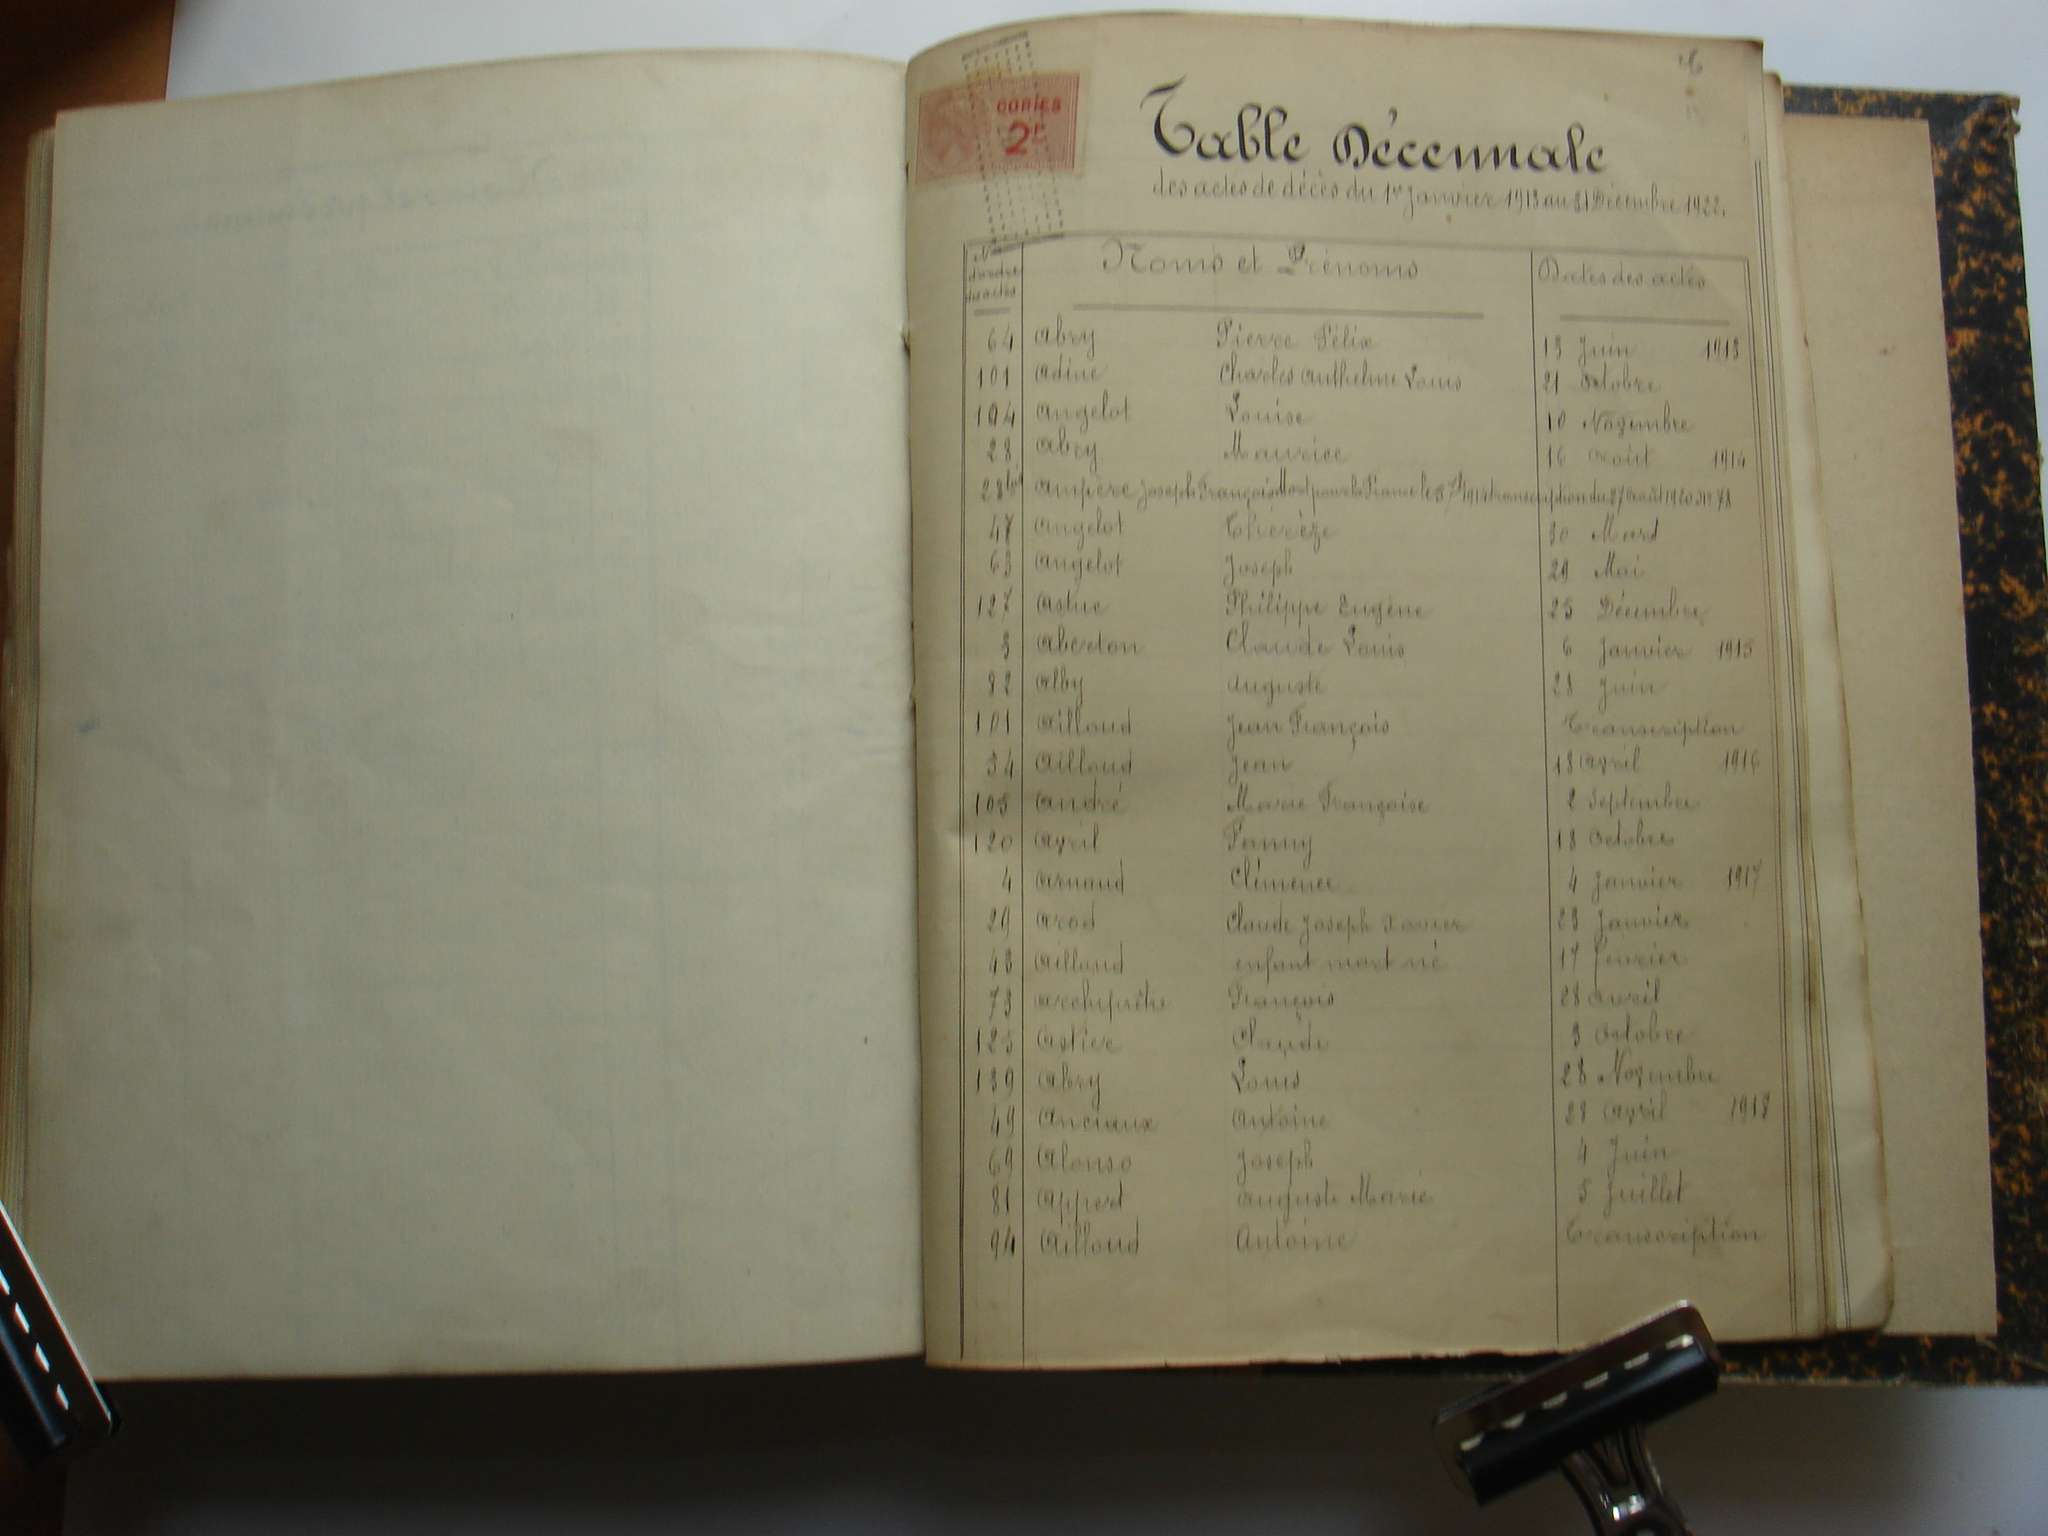 COPIES
2F
Table Décennale
des actes de décès du 1er Janvier 1913 au 31 Décembre 1922.
Nos d'ordre des actes Noms et Prénoms Dates des actes
64 Abry Pierre Félix 13 Juin 1913
101 Adine Charles Anthelme Louis 21 Octobre
104 Angelot Louise 10 Novembre
28 Abry Maurice 16 Août 1914
28 bis Ampère Joseph François Mort pour la France le 1914 transcription du 27 Août 1920 N° 78
47 Angelot Thérèze 30 Mars
63 Angelot Joseph 29 Mai
127 Astuc Philippe Eugène 25 Décembre
3 Aberton Claude Louis 6 Janvier 1915
82 Alby Auguste 28 Juin
101 Ailloud Jean François Transcription
54 Ailloud Jean 18 Avril 1916
105 André Marie Françoise 2 Septembre
120 Avril Fanny 18 Octobre
4 Arnaud Clémence 4 Janvier 1917
29 Arod Claude Joseph Xavier 23 Janvier
43 Ailloud enfant mort né 17 Février
73 Archiprêtre François 28 Avril
125 Astier Claude 9 Octobre
139 Abry Louis 28 Novembre
49 Anciaux Antoine 28 Avril 1918
69 Alonso Joseph 4 Juin
81 Appert Auguste Marie 5 Juillet
94 Ailloud Antoine Transcription